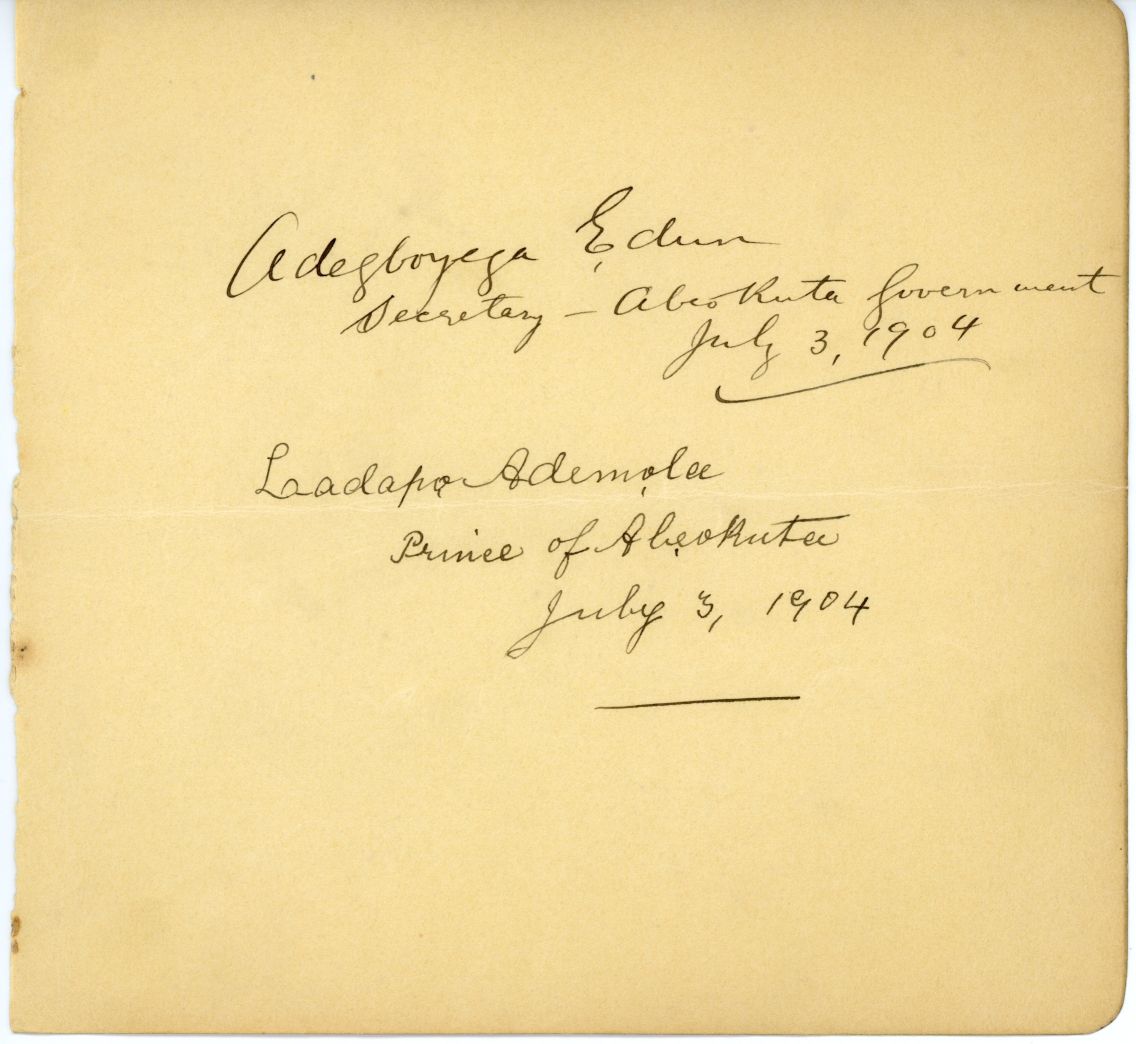 Adegboyega Ẹdun
Secretary – Abeokuta Government
July 3, 1904
Ladapọ Ademọla
Prince of Abẹokuta
July 3, 1904